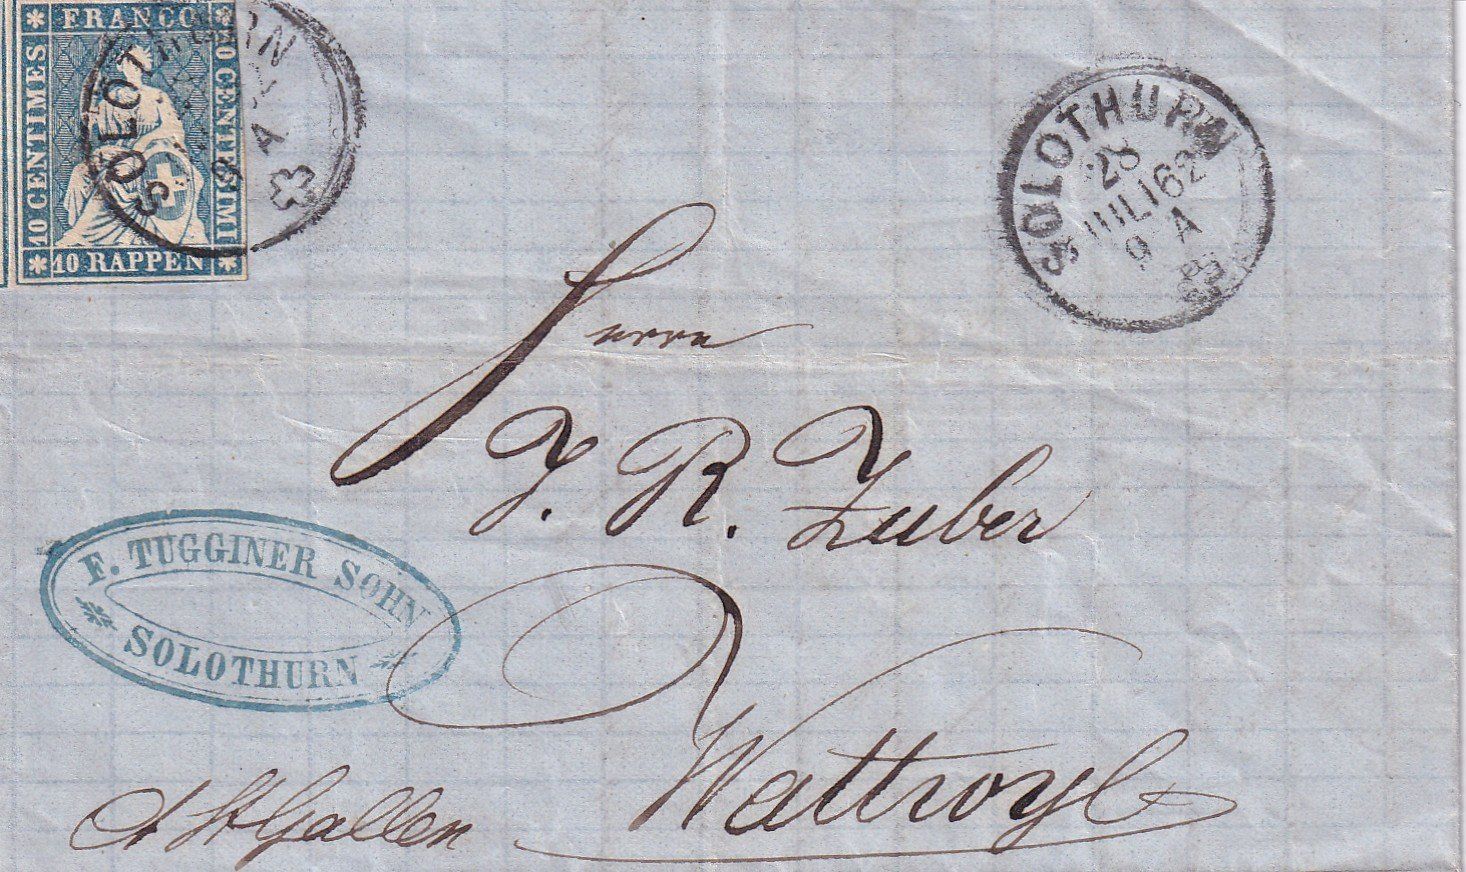 FRANCO
10 CENTIMES
10 CENTESIMI
10 RAPPEN
SOLOTHURN
9 A
SOLOTHURN
28
JULI 62
9 A
Herrn
J. R. Zuber
Wattwyl
Ct St Gallen
F. TUGGINER SOHN
SOLOTHURN